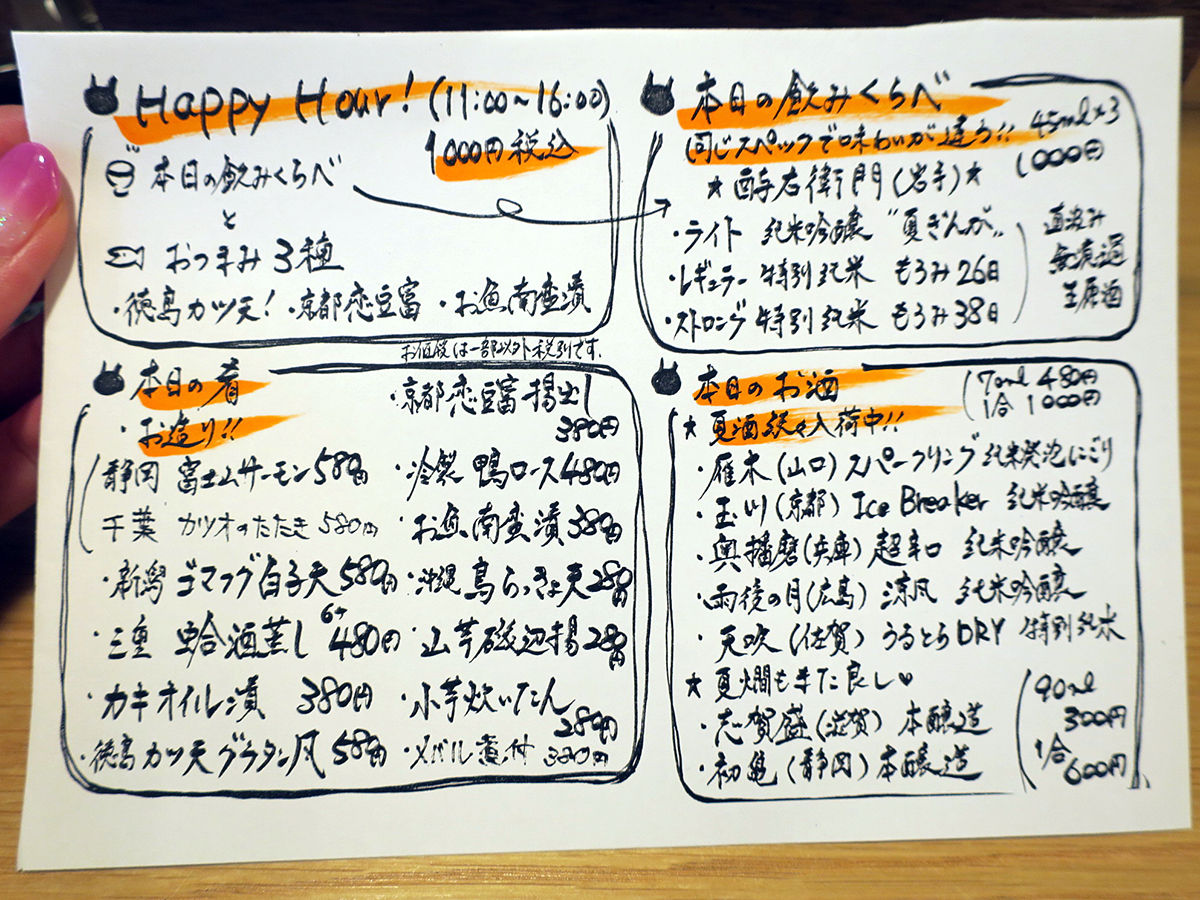 Happy Hour! (11:00~16:00)
1000円税込
本日の飲みくらべ
と
おつまみ3種
・徳島カツ天! ・京都恋豆富 ・お魚南蛮漬
お値段は一部以外税別です.
本日の飲みくらべ
同じスペックで味わいが違う!! 45ml×3
1000円
★酉与右衛門(岩手)★
・ライト 純米吟醸 "夏ぎんが"
・レギュラー 特別純米 もろみ26日
・ストロング 特別純米 もろみ38日
直汲み
無濾過
生原酒
本日の肴
・お造り!!
静岡 富士山サーモン 580円
千葉 カツオのたたき 580円
・新潟 ゴマフグ白子天 580円
・三重 蛤酒蒸し 6ヶ 480円
・カキオイル漬 380円
・徳島カツ天グラタン風 580円
・京都恋豆富揚出し
380円
・冷製 鴨ロース 480円
・お魚南蛮漬 380円
・沖縄 島らっきょ天 280円
・山芋磯辺揚 280円
・小芋炊いたん
280円
・メバル煮付 380円
本日のお酒
70ml 480円
1合 1000円
★夏酒続々入荷中!!
・雁木(山口)スパークリング 純米発泡にごり
・玉川(京都) Ice Breaker 純米吟醸
・奥播磨(兵庫)超辛口 純米吟醸
・雨後の月(広島) 涼風 純米吟醸
・天吹(佐賀) うるとらDRY 特別純米
★夏燗もまた良し♥
・志賀盛(滋賀) 本醸造
・初亀(静岡)本醸造
90ml
300円
1合
600円